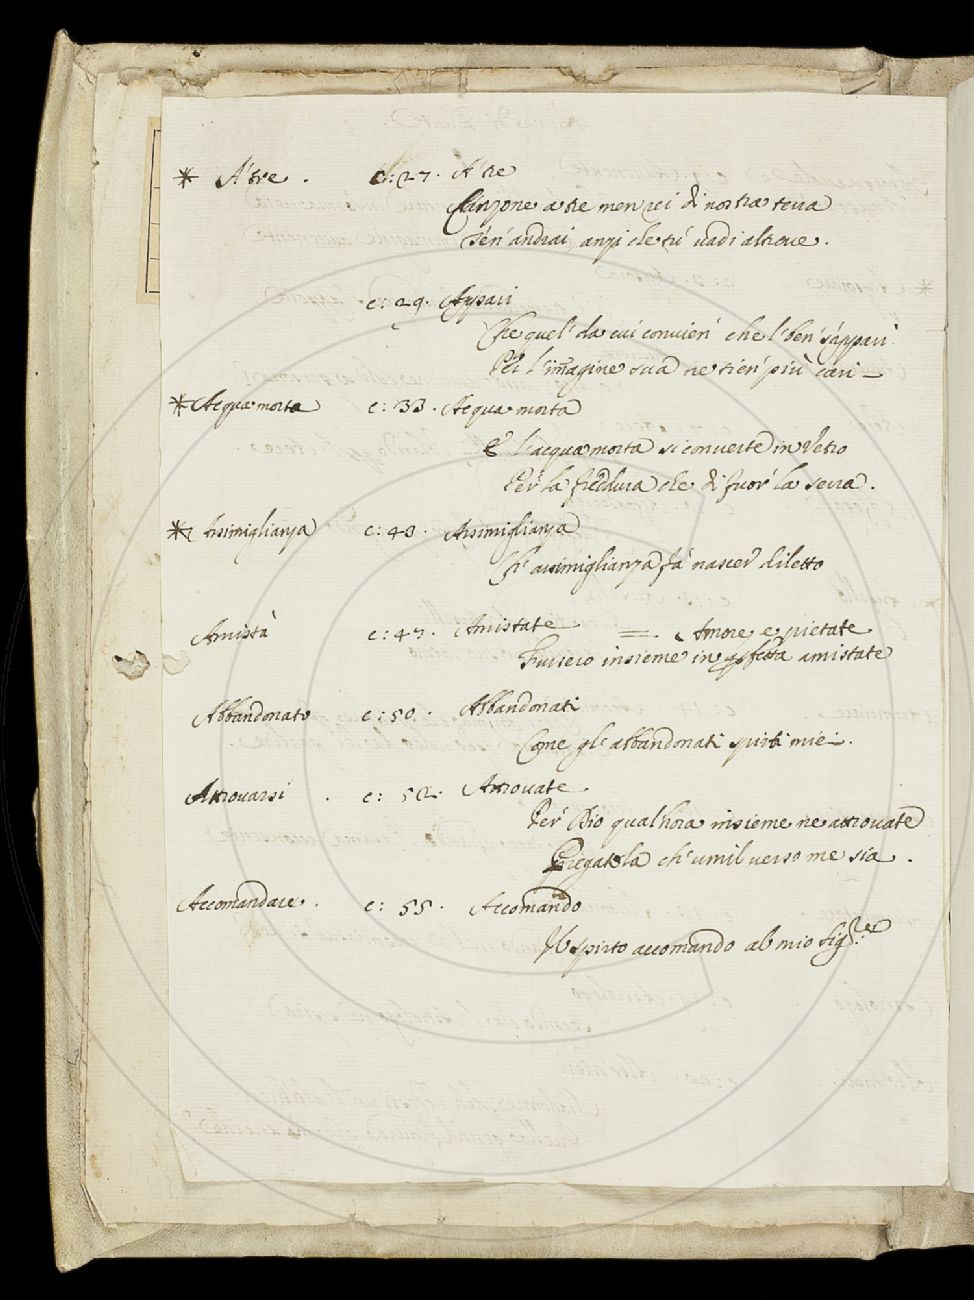 * A' tre . c: 27. A' tre
Canzone a tre men rei di nostra terra
Sen' andrai, anzi che tu' vadi altroue.
c: 29. Appari
Che quel' da cui convien' che l' ben' s'appari
Per l' imagine sua ne tien' più cari
* Acqua morta c: 33. Acqua morta
E l'acqua morta si converte in Vetro
Per la freddura che di fuor' la serra.
* Assimiglianza c: 43. Assimiglianza
Ch' assimiglianza fà nascer' diletto
Amistà c: 47. Amistate = Amore e pietate
Fussero insieme in pfetta amistate
Abbandonato c: 50. Abbandonati
Come gl' abbandonati spirti miei.
Attrovarsi . c: 52. Attrovate
Per' Dio qualhora insieme ne attrovate
Pregatela ch' umil verso me sia.
Accomandare. c: 55. Accomando
Il spirto accomando al mio Sig:re